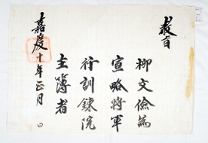 教旨
柳文儉爲
宣略將軍
行訓鍊院
主簿者
嘉慶十年正月 日